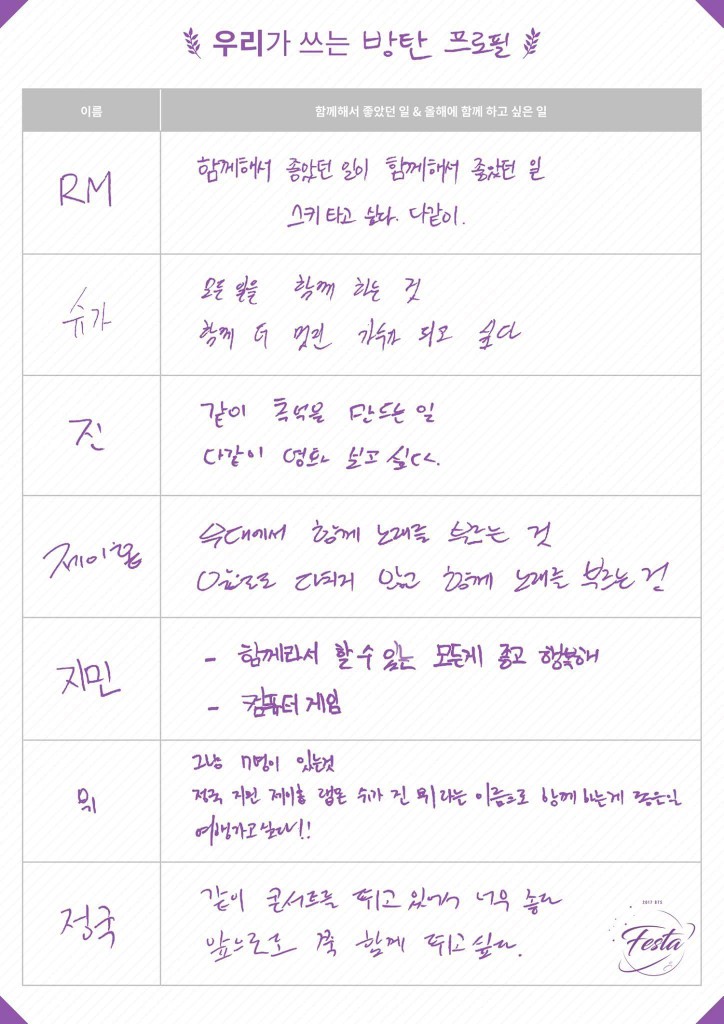 우리가 쓰는 방탄 프로필
이름
함께해서 좋았던 일 & 올해에 함께 하고 싶은 일
RM
함께해서 좋았던 일이 함께해서 좋았던 일
스키 타고 싶다. 다같이.
슈가
모든 일을 함께 하는 것
함께 더 멋진 가수가 되고 싶다
진
같이 추억을 만드는 일
다같이 영화 찍고 싶다.
제이홉
무대에서 함께 노래를 부르는 것
앞으로도 다치지 않고 함께 노래를 부르는 것
지민
- 함께라서 할 수 있는 모든게 좋고 행복해
- 컴퓨터 게임
뷔
그냥 7명이 있는것
정국 지민 제이홉 랩몬 슈가 진 뷔라는 이름으로 함께 하는게 좋은일
여행가고싶다!!
정국
같이 콘서트를 뛰고 있어서 너무 좋다
앞으로도 쭉 함께 뛰고싶다.
2017 BTS
Festa